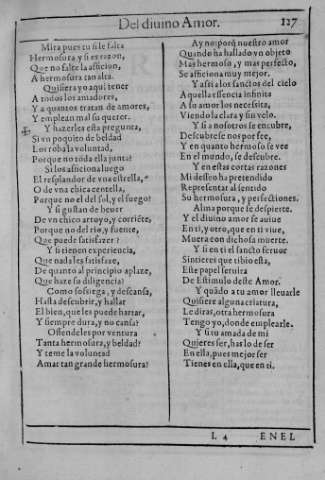 Del diuino Amor. 127
Mira pues tu si le falta
Hermosura y si es razon,
Que no falte la aficion,
A hermosura tan alta.
Quisiera yo aqui tener
A todos los amadores,
Y a quantos tratan de amores,
Y emplean mal su querer.
Y hazerles esta pregunta,
Si vn poquito de beldad
Los roba la voluntad,
Porque no toda ella junta?
Si los aficiona luego
El resplandor de vna estrella,
O de vna chica centella,
Porque no el del sol, y el fuego?
Y si gustan de beuer
De vn chico arroyo, y corriẽte,
Porque no del rio, y fuente,
Que puede satisfazer?
Y si tienen experiencia,
Que nada les satisfaze,
De quanto al principio aplaze,
Que haze su diligencia?
Como sossiega, y descansa,
Hasta descubrir, y hallar
El bien, que les puede hartar,
Y siempre dura, y no cansa?
Ofendeles por ventura
Tanta hermosura, y beldad?
Y teme la voluntad
Amar tan grande hermosura?
Ay no: porq̃ nuestro amor
Quando ha hallado vn objeto
Mas hermoso, y mas perfecto,
Se afficiona muy mejor.
Y assi a los sanctos del cielo
Aquella essencia infinita
A su amor los necessita,
Viendola clara y sin velo.
Y si a nosotros se encubre,
Descubrese nos por fee,
Y en quanto hermoso se vee
En el mundo, se descubre.
Y en estas cortas razones
Mi desseo ha pretendido
Representar al sentido
Su hermosura, y perfectiones.
Alma porque se despierte.
Y el diuino amor se auiue
En ti, y otro, que en ti viue,
Muera con dichosa muerte.
Y si en ti el sancto feruor
Sintieres que tibio esta,
Este papel seruira
De Estimulo deste Amor.
Y quãdo a tu amor lleuarle
Quisiere alguna criatura,
Le diras, otra hermosura
Tengo yo, donde emplearle.
Y si tu amada de mi
Quieres ser, has lo de ser
En ella, pues mejor ser
Tienes en ella, que en ti.
I. 4 ENEL